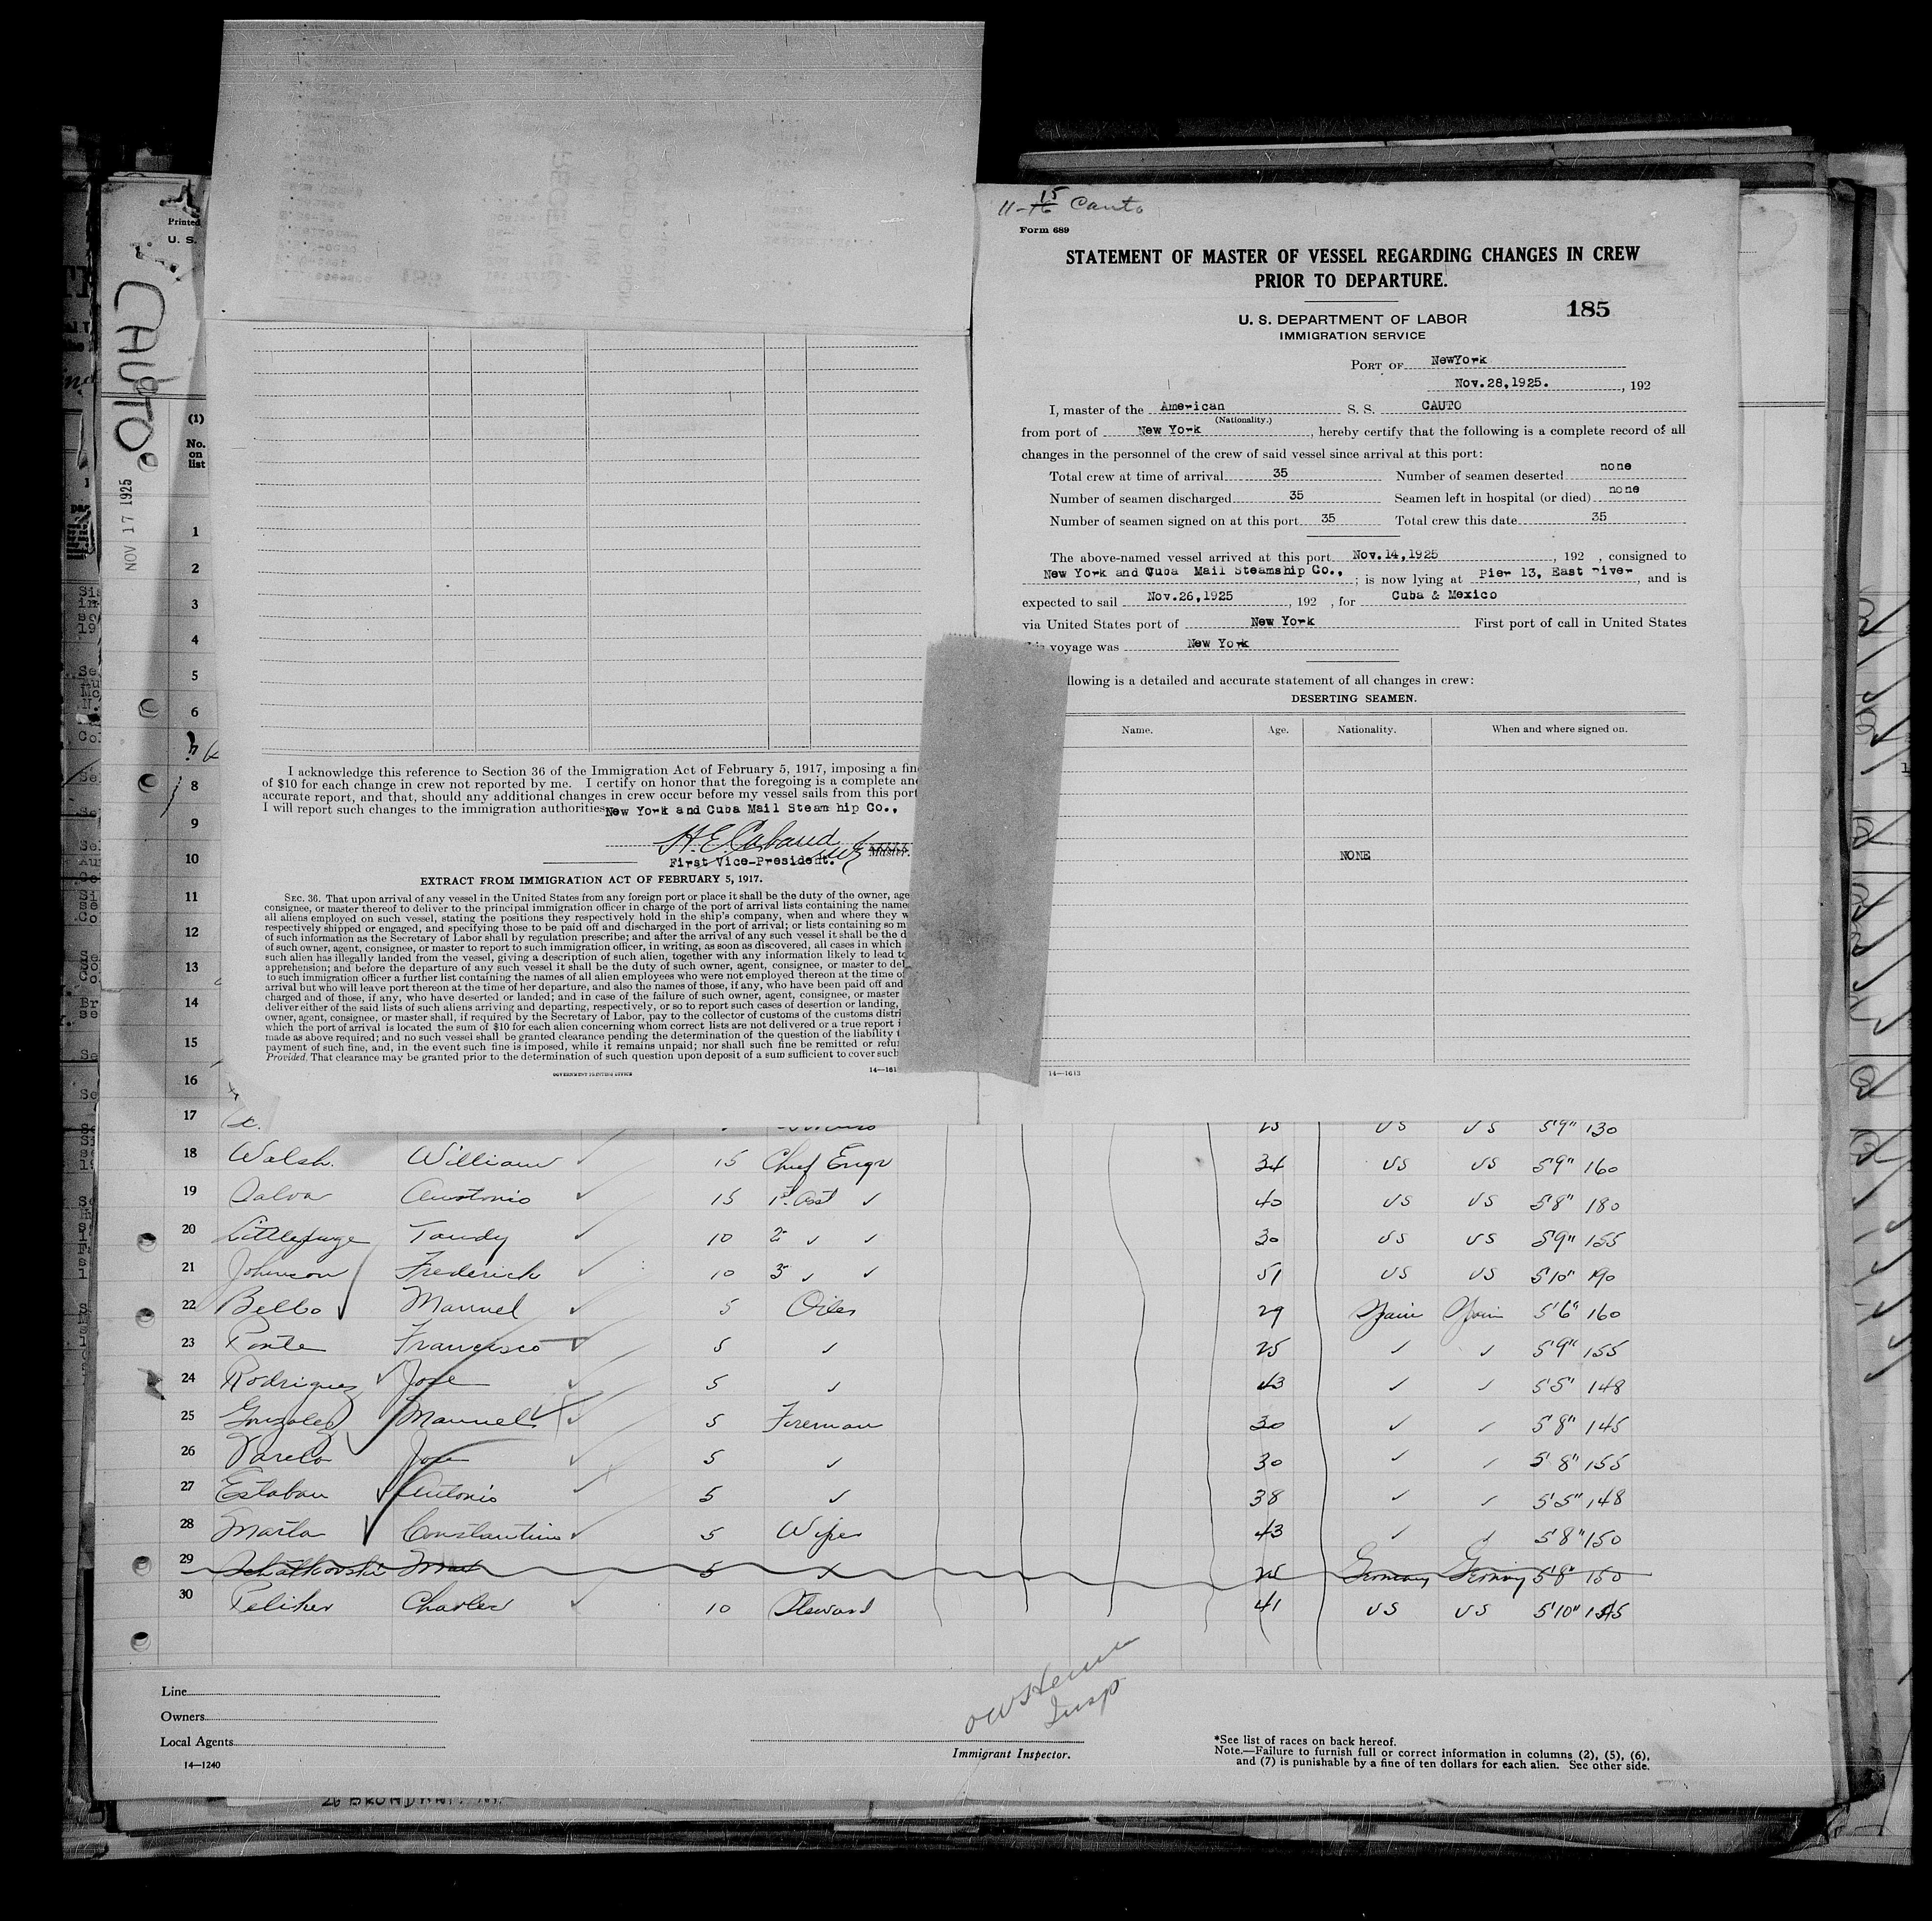 11-15 Cauto
Form 689
STATEMENT OF MASTER OF VESSEL REGARDING CHANGES IN CREW
PRIOR TO DEPARTURE.
185
U. S. DEPARTMENT OF LABOR
IMMIGRATION SERVICE
PORT OF NewYork
Nov.28,1925. , 192
I, master of the American S. S. CAUTO
(Nationality.)
from port of New York, hereby certify that the following is a complete record of all
changes in the personnel of the crew of said vessel since arrival at this port:
Total crew at time of arrival 35 Number of seamen deserted none
Number of seamen discharged 35 Seamen left in hospital (or died) none
Number of seamen signed on at this port 35 Total crew this date 35
The above-named vessel arrived at this port Nov.14,1925, 192 , consigned to
New York and Cuba Mail Steamship Co., ; is now lying at Pier 13, East River, and is
expected to sail Nov.26,1925, 192 , for Cuba & Mexico
via United States port of New York First port of call in United States
voyage was New York
llowing is a detailed and accurate statement of all changes in crew:
DESERTING SEAMEN.
Name. Age. Nationality. When and where signed on.
NONE
14—1613
I acknowledge this reference to Section 36 of the Immigration Act of February 5, 1917, imposing a fin
of $10 for each change in crew not reported by me. I certify on honor that the foregoing is a complete an
accurate report, and that, should any additional changes in crew occur before my vessel sails from this port
I will report such changes to the immigration authorities. New York and Cuba Mail Steam hip Co.,
H. E. Cabaud
First Vice-President. Master.
EXTRACT FROM IMMIGRATION ACT OF FEBRUARY 5, 1917.
SEC. 36. That upon arrival of any vessel in the United States from any foreign port or place it shall be the duty of the owner, age
consignee, or master thereof to deliver to the principal immigration officer in charge of the port of arrival lists containing the name
all aliens employed on such vessel, stating the positions they respectively hold in the ship's company, when and where they w
respectively shipped or engaged, and specifying those to be paid off and discharged in the port of arrival; or lists containing so m
of such information as the Secretary of Labor shall by regulation prescribe; and after the arrival of any such vessel it shall be the d
of such owner, agent, consignee, or master to report to such immigration officer, in writing, as soon as discovered, all cases in which
such alien has illegally landed from the vessel, giving a description of such alien, together with any information likely to lead to
apprehension; and before the departure of any such vessel it shall be the duty of such owner, agent, consignee, or master to del
to such immigration officer a further list containing the names of all alien employees who were not employed thereon at the time of
arrival but who will leave port thereon at the time of her departure, and also the names of those, if any, who have been paid off and
charged and of those, if any, who have deserted or landed; and in case of the failure of such owner, agent, consignee, or master
deliver either of the said lists of such aliens arriving and departing, respectively, or so to report such cases of desertion or landing,
owner, agent, consignee, or master shall, if required by the Secretary of Labor, pay to the collector of customs of the customs distri
which the port of arrival is located the sum of $10 for each alien concerning whom correct lists are not delivered or a true report i
made as above required; and no such vessel shall be granted clearance pending the determination of the question of the liability t
payment of such fine, and, in the event such fine is imposed, while it remains unpaid; nor shall such fine be remitted or refu
Provided, That clearance may be granted prior to the determination of such question upon deposit of a sum sufficient to cover such
GOVERNMENT PRINTING OFFICE 14—161
Printed
U. S.
CAUTO
NOV 17 1925
(1)
No.
on
list
1
2
3
4
5
6
7
8
9
10
11
12
13
14
15
16
17 US US 5'9" 130
18 Walsh William 15 Chief Engr 34 US US 5'9" 160
19 Salva Austonio 15 1st Asst ✓ 40 US US 5'8" 180
20 Littlepage Tandy 10 2" ✓ ✓ 30 US US 5'9" 155
21 Johnson Frederick 10 3" ✓ ✓ 51 US US 5'10" 190
22 Bello Manuel 5 Oiler 29 Spain Spain 5'6" 160
23 Ponte Francisco 5 ✓ 25 ✓ ✓ 5'9" 155
24 Rodriguez Jose 5 ✓ 43 ✓ ✓ 5'5" 148
25 Gonzales Manuel 5 Fireman 30 ✓ ✓ 5'8" 145
26 Varela Jose 5 ✓ 30 ✓ ✓ 5'8" 155
27 Estaban Antonio 5 ✓ 38 ✓ ✓ 5'5" 148
28 Marta Constantino 5 Wiper 43 ✓ ✓ 5'8" 150
29 Schatkovski Max 5 ✓ 25 Germany Germany 5'8" 150
30 Peliker Charles 10 Steward 41 US US 5'10"
Line
Owners
Local Agents
14—1240
Insp
Immigrant Inspector.
*See list of races on back hereof.
Note.—Failure to furnish full or correct information in columns (2), (5), (6),
and (7) is punishable by a fine of ten dollars for each alien. See other side.